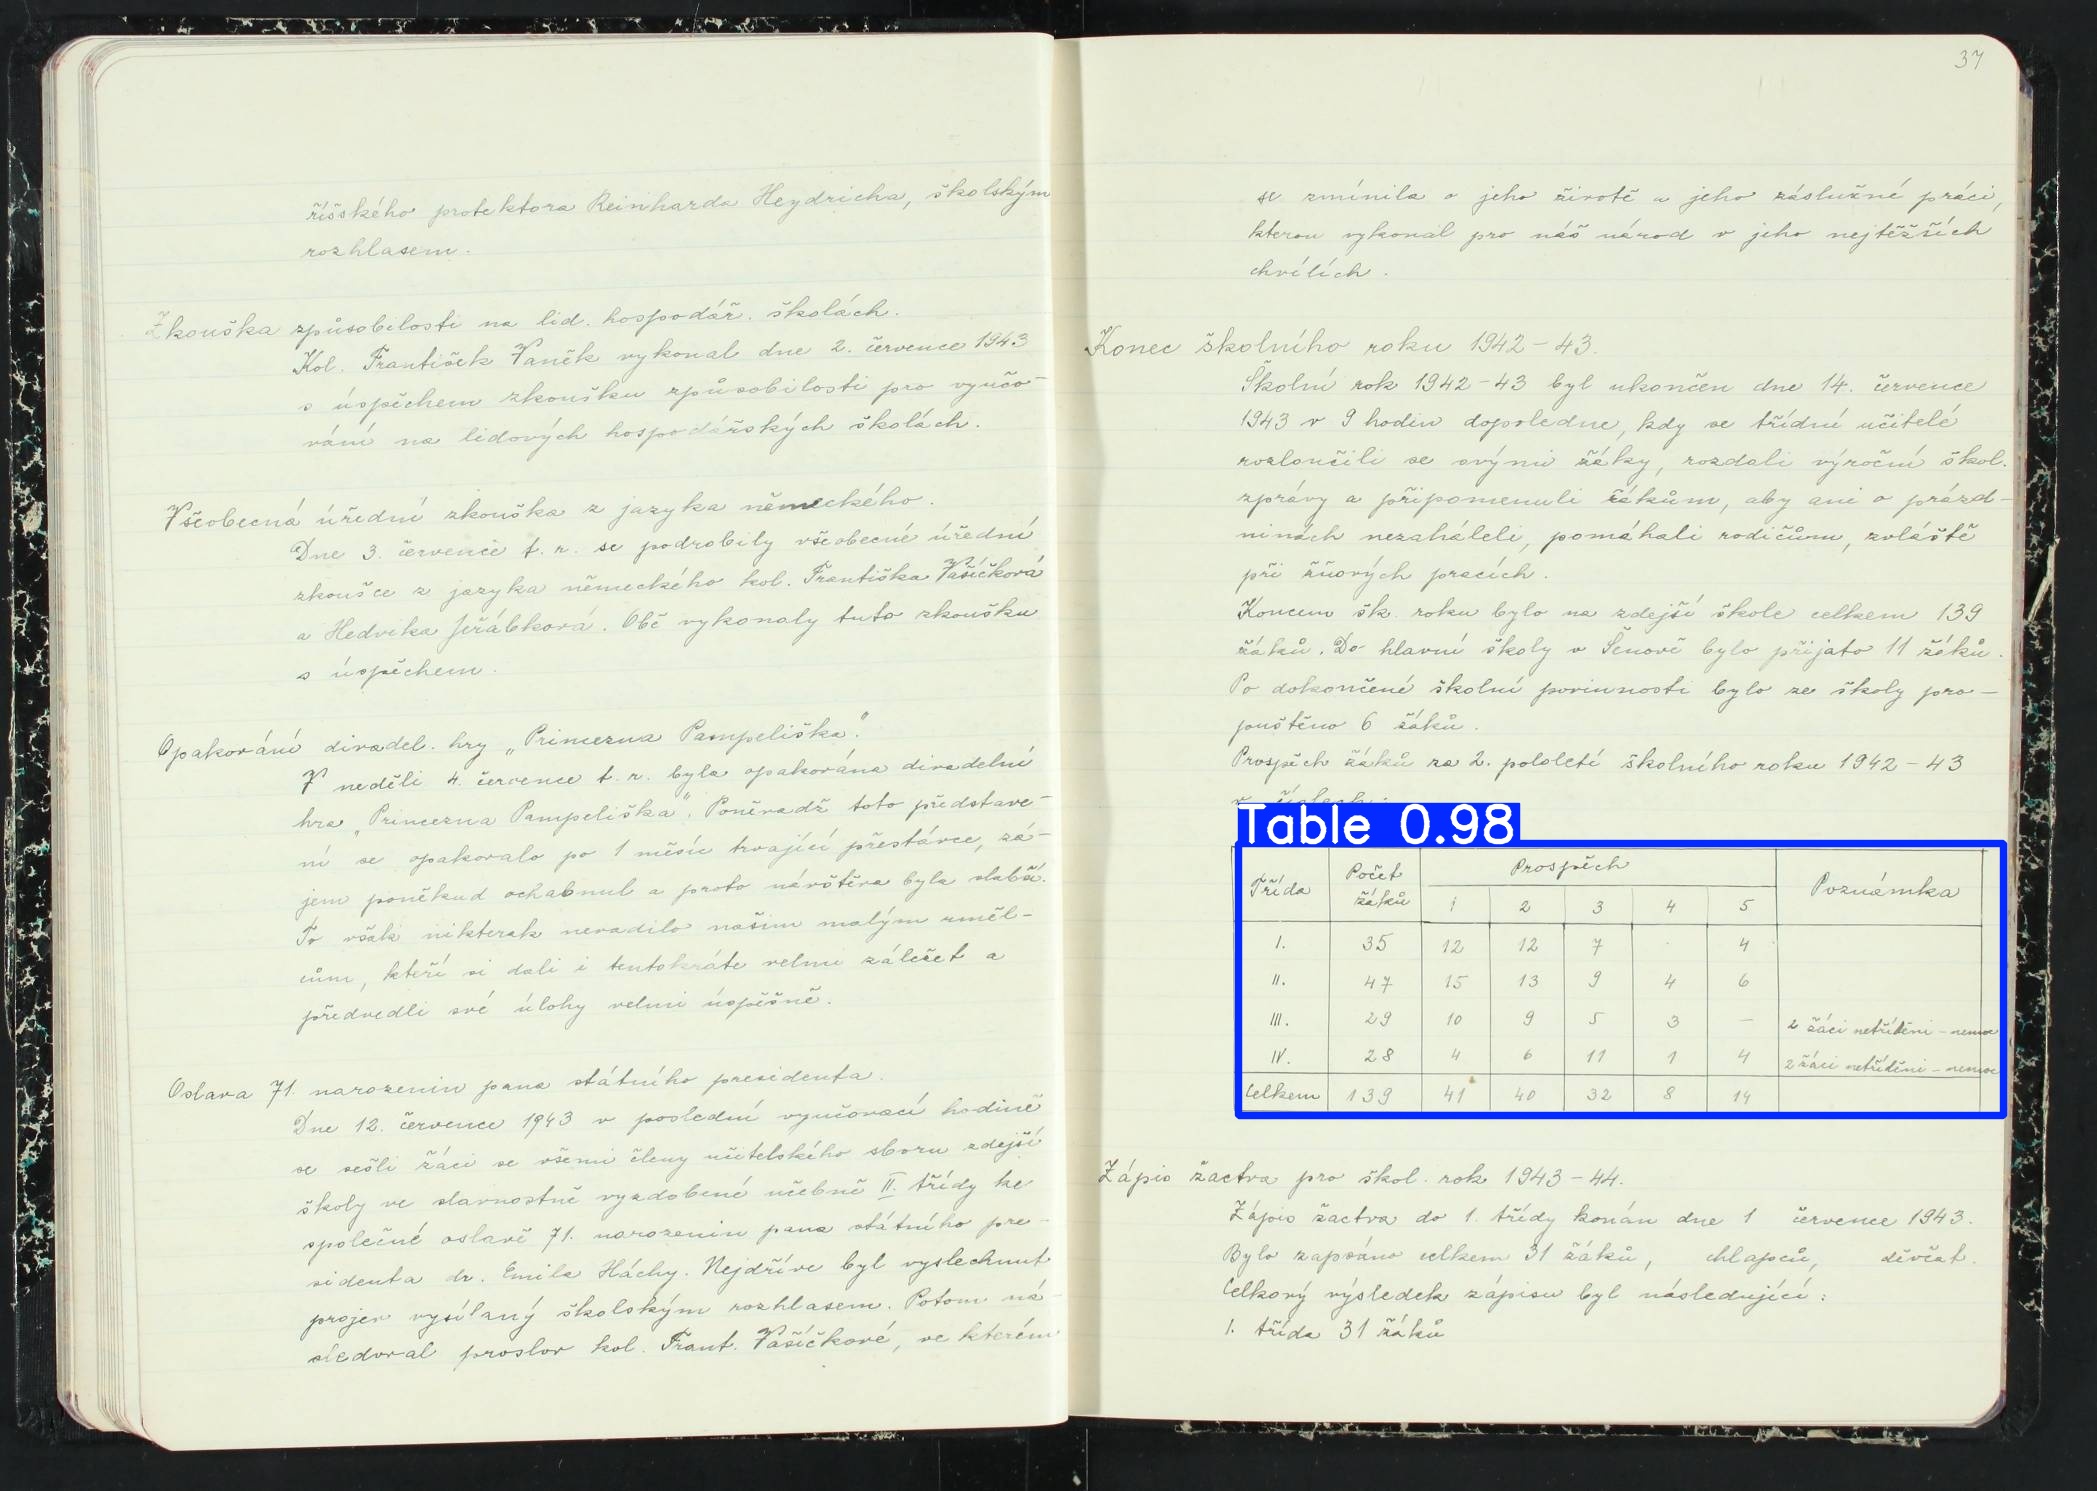 říšského protektora Reinharda Heydricha, školským
rozhlasem.
Zkouška způsobilosti na lid. hospodář. školách.
Kol. František Vaněk vykonal dne 2. července 1943
s úspěchem zkoušku způsobilosti pro vyučo-
vání na lidových hospodářských školách.
Všeobecná úřední zkouška z jazyka německého.
Dne 3. července t. r. se podrobily všeobecné úřední
zkoušce z jazyka německého kol. Františka Vašíčková
a Hedvika Jeřábková. Obě vykonaly tuto zkoušku
s úspěchem.
Opakování divadel. hry „Princezna Pampeliška".
V neděli 4. července t. r. byla opakována divadelní
hra „Princezna Pampeliška". Poněvadž toto představe-
ní se opakovalo po 1 měsíc trvající přestávce, zá-
jem poněkud ochabnul a proto návštěva byla slabší.
To však nikterak nevadilo našim malým uměl-
cům, kteří si dali i tentokráte velmi záležet a
předvedli své úlohy velmi úspěšně.
Oslava 71. narozenin pana státního presidenta.
Dne 12. července 1943 v poslední vyučovací hodině
se sešli žáci se všemi členy učitelského sboru zdejší
školy ve slavnostně vyzdobené učebně II. třídy ke
společné oslavě 71. narozenin pana státního pre-
sidenta dr. Emila Háchy. Nejdříve byl vyslechnut
projev vysílaný školským rozhlasem. Potom ná-
sledoval proslov kol. Frant. Vašíčkové, ve kterém
37
se zmínila o jeho životě a jeho záslužné práci,
kterou vykonal pro náš národ v jeho nejtěžších
chvílích.
Konec školního roku 1942-43.
Školní rok 1942-43 byl ukončen dne 14. července
1943 v 9 hodin dopoledne, kdy se třídní učitelé
rozloučili se svými žáky, rozdali výroční škol.
zprávy a připomenuli žákům, aby ani o prázd-
ninách nezaháleli, pomáhali rodičům, zvláště
při žňových pracích.
Koncem šk. roku bylo na zdejší škole celkem 139
žáků. Do hlavní školy v Šenově bylo přijato 11 žáků.
Po dokončené školní povinnosti bylo ze školy pro-
puštěno 6 žáků.
Prospěch žáků za 2. pololetí školního roku 1942-43
Table 0.98
Třída Počet žáků Prospěch Poznámka
1 2 3 4 5
I. 35 12 12 7 · 4
II. 47 15 13 9 4 6
III. 29 10 9 5 3 – 2 žáci netříděni - nemoc
IV. 28 4 6 11 1 4 2 žáci netříděni - nemoc
Celkem 139 41 40 32 8 14
Zápis žactva pro škol. rok 1943-44.
Zápis žactva do 1. třídy konán dne 1 července 1943.
Bylo zapsáno celkem 31 žáků, chlapců, děvčat.
Celkový výsledek zápisu byl následující:
1. třída 31 žáků